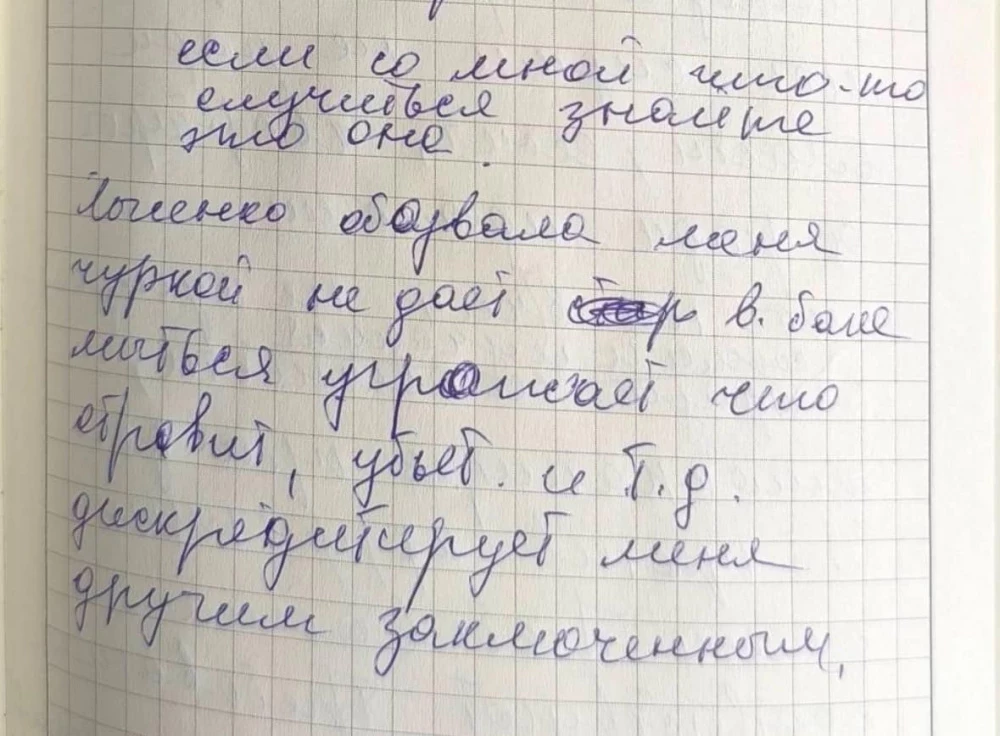 если со мной что-то
случиться знайте
это она.
обозвала меня
чуркой не даёт в. бане
мыться угрожает что
отровит, убьет. и т.д.
дискредитирует меня
другим заключенным,